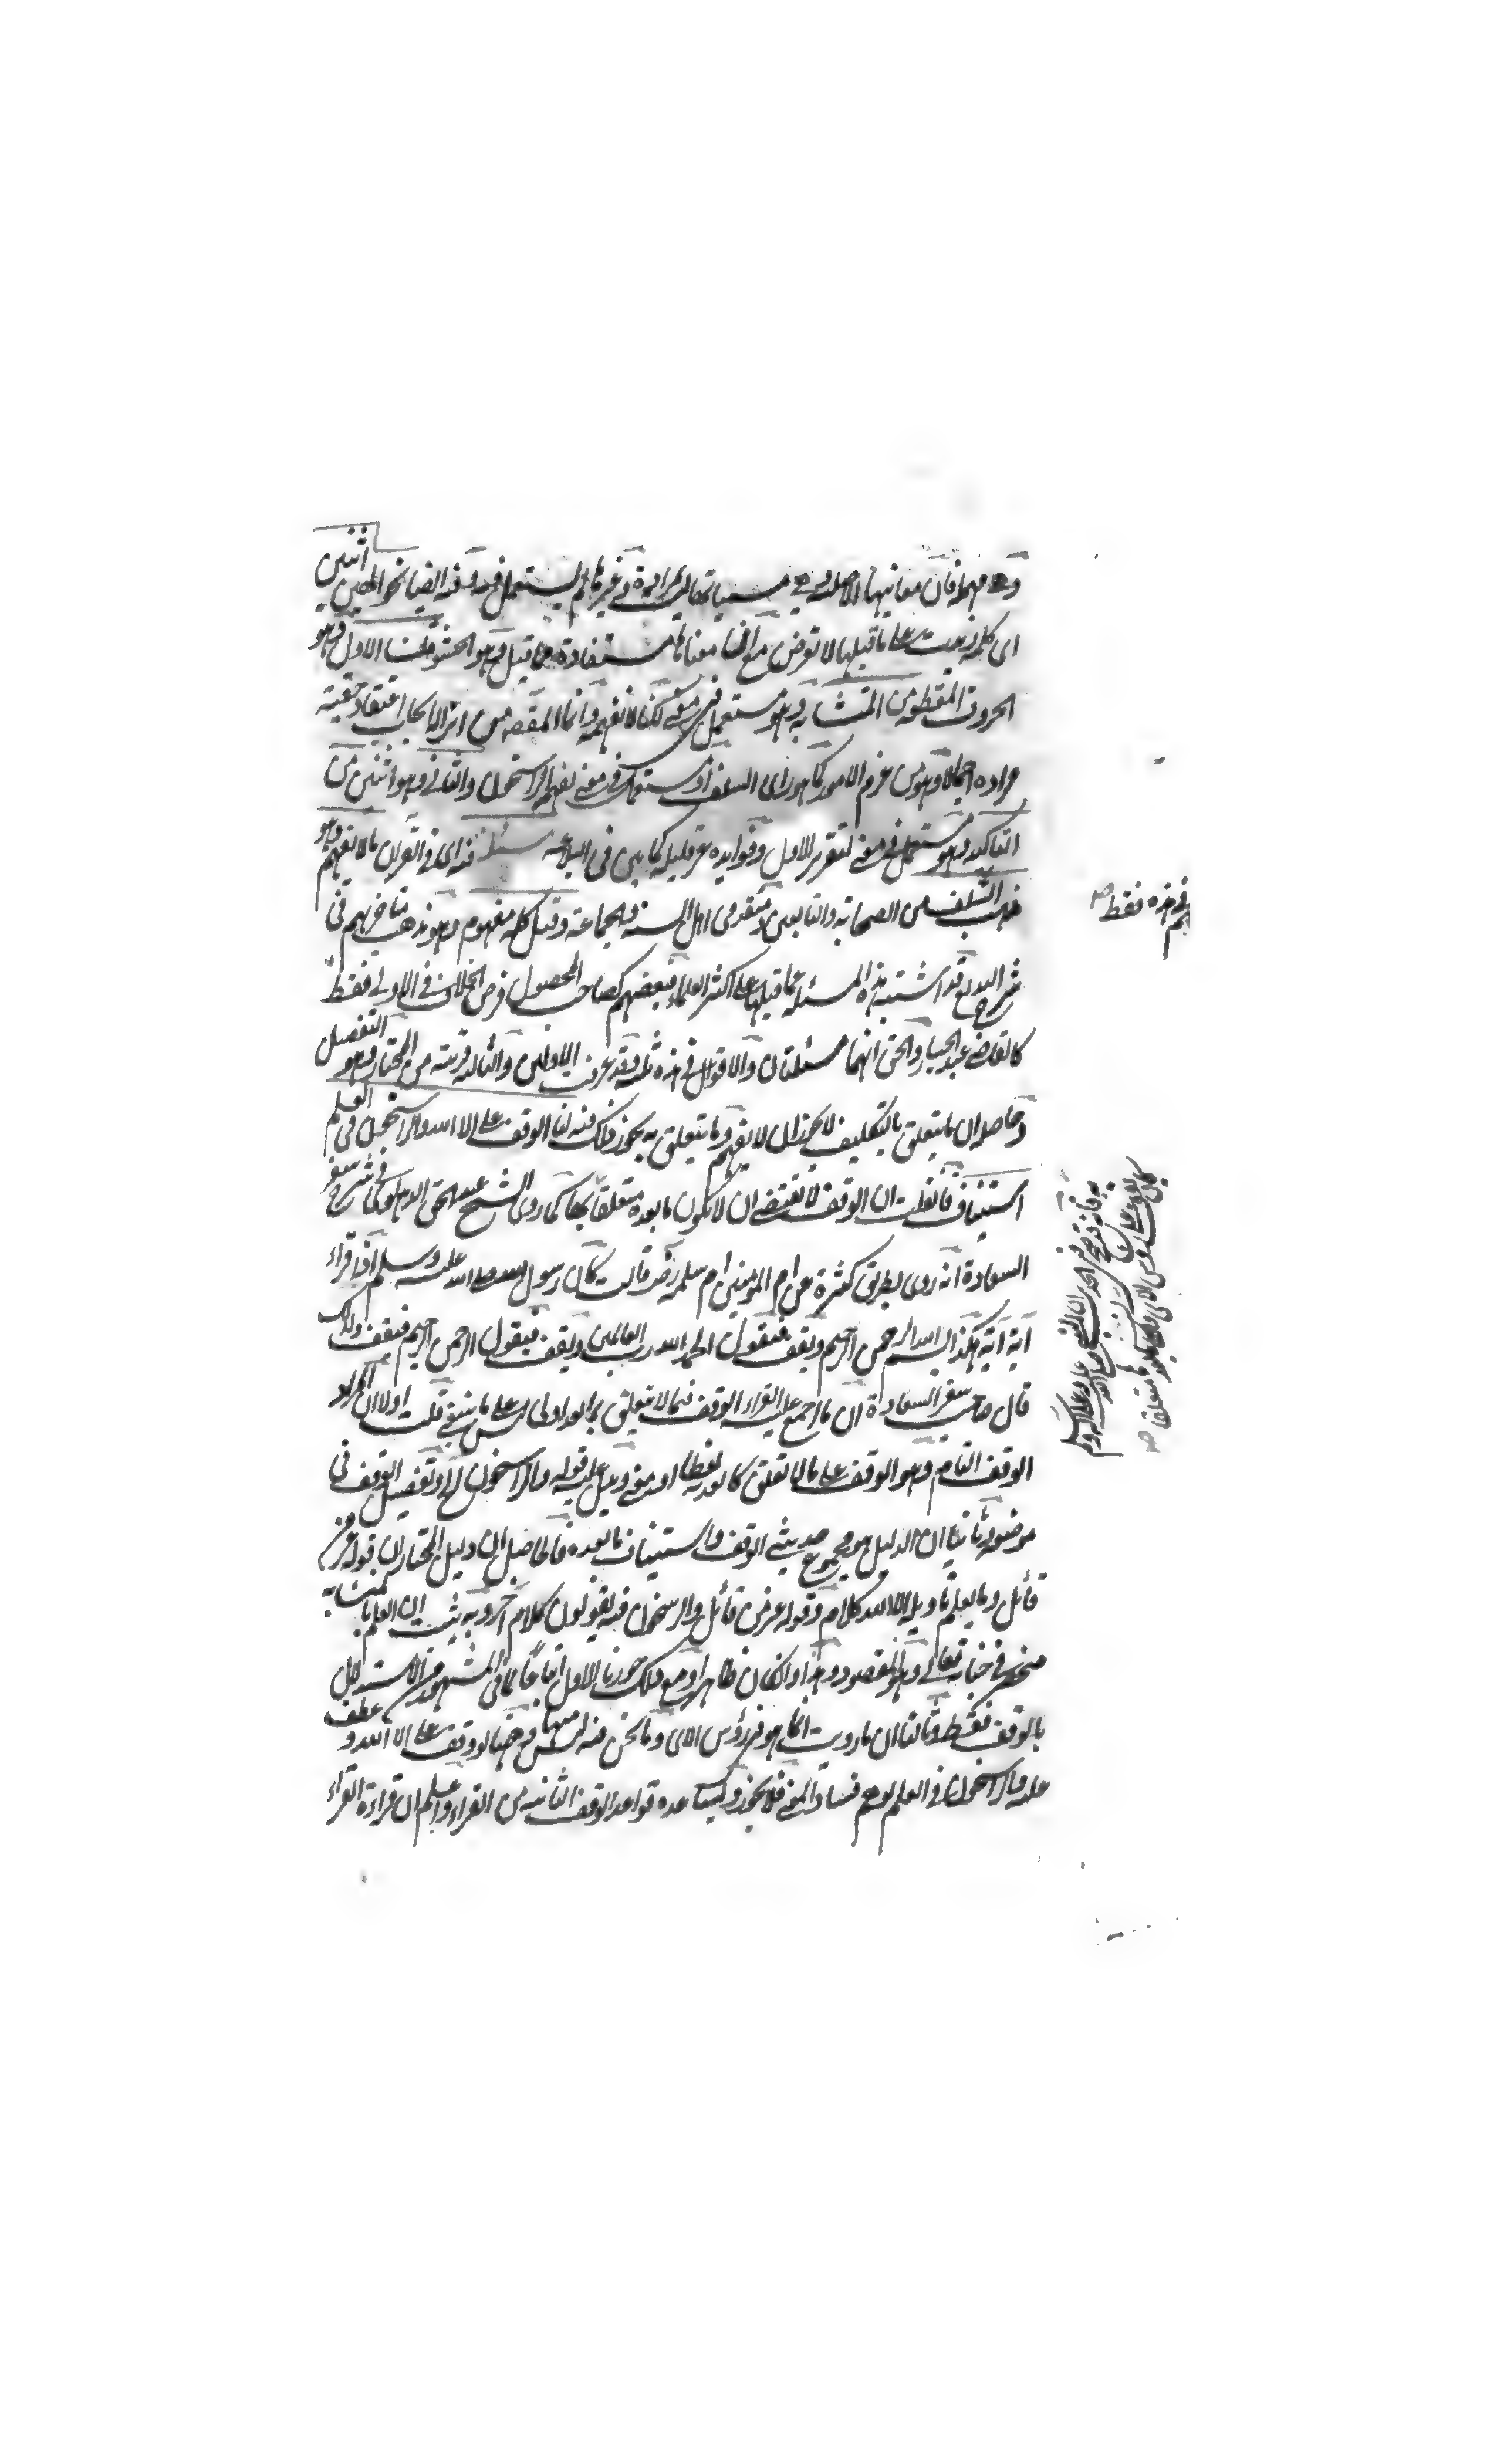 وهى مهملة فان معانيها الاصلية وهى مسمياتها ليست مرادة وفي غيرها لم يستعمل وفيه ايضا نحو الهين اثنين
اى كلمة زيدت على ما قبلها لا تعرض مع ان معناها مستفادة مما قبل وهو الحشو قلت الاول وهو
الحروف المقطعة من المتشابه وهو مستعمل في معنى لكنا لا نفهمه وانما المقصد من انزاله ايجاب اعتقاد حقية
مراده اجمالا وهو من عزم الامور كما هو راى السلف او مستعمل في معنى يفهمه الراسخون والثاني وهو اثنين من
التاكيد وهو مستعمل في معنى لتقرير الاول وفوايده غير قليلة كما بين في البلاغة مسئلة فيه اى في القران ما لا يفهم وهو
مذهب السلف من الصحابة والتابعين ومتقدمى اهل السنة والجماعة وقيل كله مفهوم وهو مذهب متاخريهم في
شرح البديع قد اشتبه هذه المسئلة بما قبلها على اكثر العلماء فبعضهم كصاحب المحصول فرض الخلاف في الاولى فقط
كالقاضى عبد الجبار والحق انهما مسئلتان والاقوال في هذه ثلثة وقد عرفت الاولين والثالثة قريبة من المختار وهو التفصيل
وحاصله ان ما يتعلق بالتكليف لا يجوز ان لا يفهم وما لا يتعلق به يجوز ذلك فيه لنا الوقف على الا الله والراسخون في العلم
استيناف فان قلت ان الوقف لا يقتضى ان لا يكون ما بعده متعلقا بها كما روى الشيخ عبد الحق الدهلوى في شرح سفر
السعادة انه روى بطريق كثيرة عن ام المومنين ام سلمة رض قالت كان رسول الله صلى الله عليه وسلم اذا قراء
آية آية هكذا بسم الله الرحمن الرحيم ويقف فيقول الحمد لله رب العالمين ويقف فيقول الرحمن الرحيم فيقف ولذلك
قال صاحب سفر السعادة ان ما اجمع عليه القراء الوقف فيما لا يتعلق بما بعد اولى ليس على ما ينبغي قلت اولا ان المراد
الوقف التام وهو الوقف على ما لا تعلق له بما بعده لفظا او معنى ويدل عليه قوله والراسخون الخ وتفصيل الوقف في
موضعه وثانيا ان الدليل هو مجموع حديثى الوقف واستيناف ما بعده فالحاصل ان دليل المختار ان قوله عز من
قائل وما يعلم تاويله الا الله كلام وقوله عز من قائل والراسخون فيه يقولون كلام آخر وبه يثبت ان العلم بالمتشابه
منحصر في جنابه تعالى وهو المقصود وهذا وان كان ظاهرا ومع ذلك جوزنا الاول اتباعا لما في المشهور من الاستدلال
بالوقف فقط وثالثا ان ما رويت انما هو في رؤس الاى وما نحن فيه ليس منها فح هنا لو وقف على الا الله وعطف
عليه والراسخون في العلم يوهم فساد المعنى فلا يجوز ويساعده قواعد الوقف الثابتة من القراء واعلم ان قراءة القراء
في هذه فقط صه